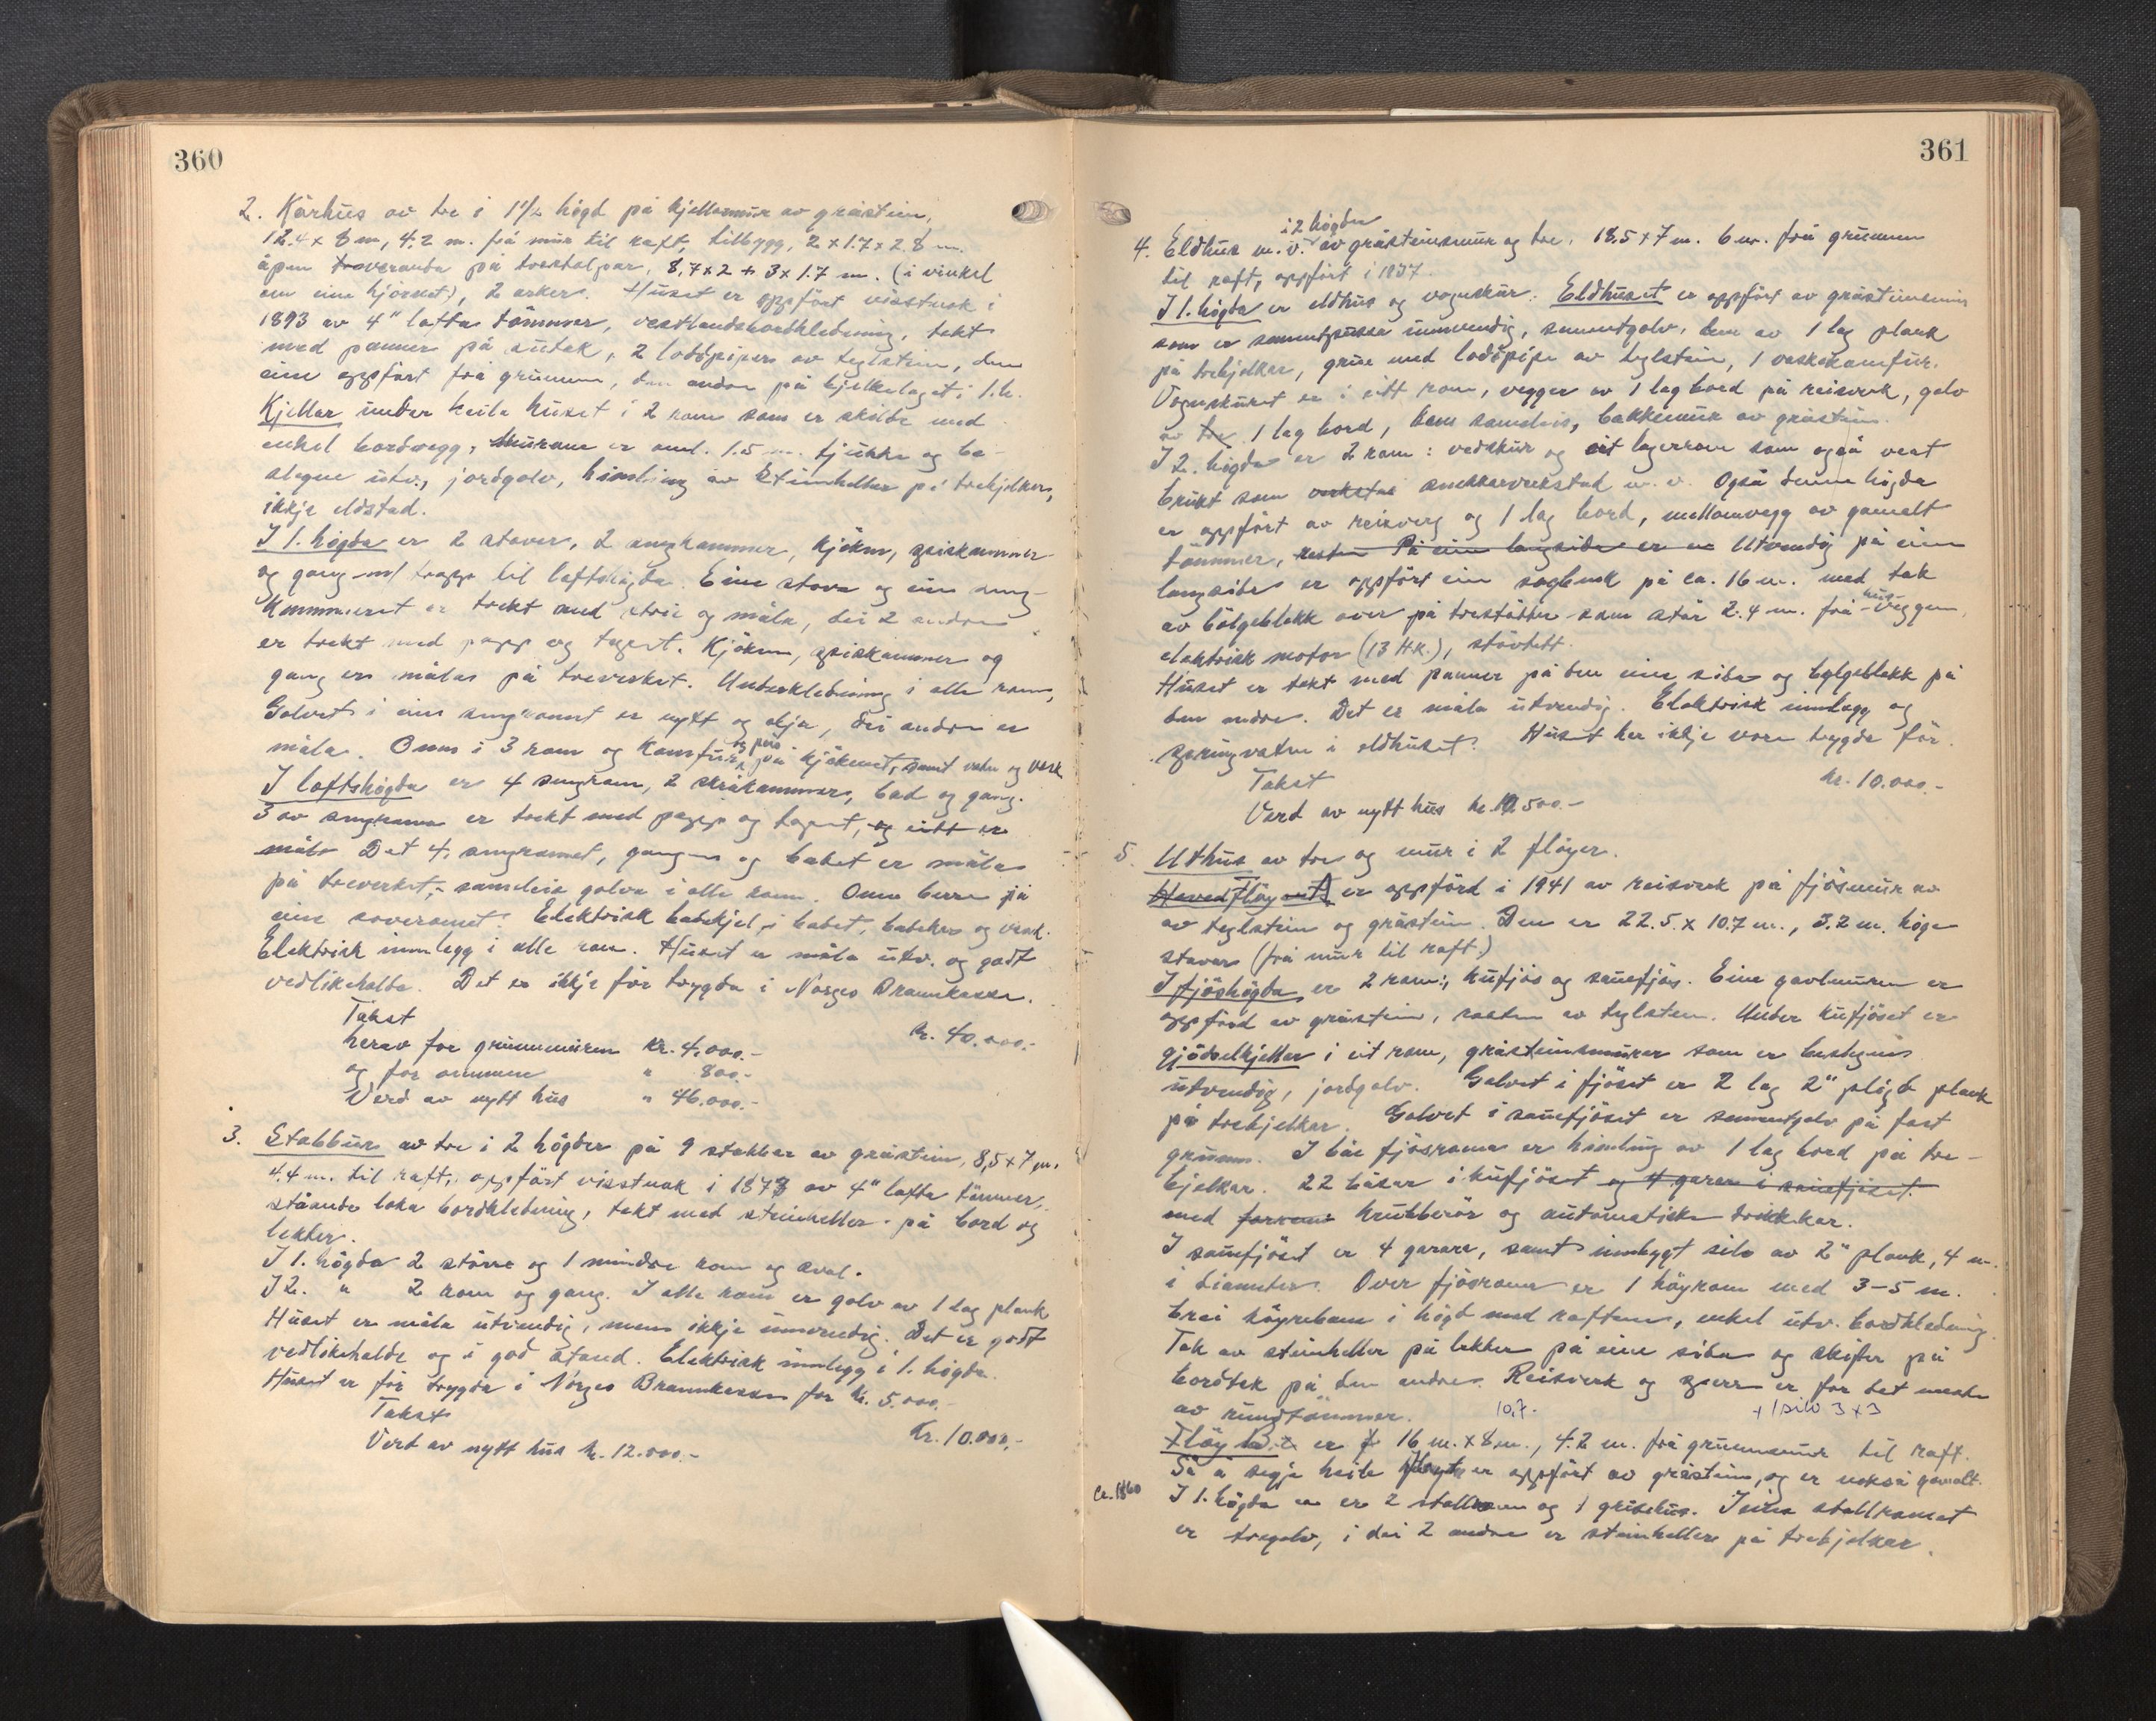 360
2. Kårhus av tre i 1 1/2 högd på kjellarmur av gråstein,
12.4 x 8 m, 4.2 m. frå mur til raft, tilbygg, 2 x 1.7 x 2.8 m.
åpen veranda på trestolpar, 8,7 x 2 + 3 x 1.7 m. (i vinkel
om eine hjörnet), 2 arker. Huset er oppfört visstnok i
1893 av 4" lafta tömmer, vestlandsbordkledning, tekt
med panner på sutak, 2 loddpiper av teglstein, den
eine oppfört frå grunnen, den andre på bjelkelaget i 1. h.
Kjellar under heile huset i 2 rom som er skilde med
enkel bordvegg, murane er oml. 1.5 m. tjukke og be-
slegne utv., jordgolv, himling av steinheller på trebjelker,
ikkje eldstad.
I 1. högda er 2 stover, 2 sengkammer, kjöken, spiskammer
og gang m/ trapp til loftshögda. Eine stova og eine seng-
kammeret er trekt med strie og måla, dei 2 andre
er trekt med papp og tapet. Kjöken, spiskammer og
gang er måla på treverket. Underkledning i alle rom,
Golvet i eine sengromet er nytt og olja, dei andre er
måla. Omn i 3 rom og komfur og peis på kjökenet, samt vatn og vask
I loftshögda er 4 sengrom, 2 skråkammer, bad og gang.
3 av sengroma er trekt med papp og tapet, og eitt er
måla Det 4. sengromet, gangen og badet er måla
på treverket, - sameleis golva i alle rom. Omn berre på
eine soveromet. Elektrisk badekjel i badet, badekar og vask.
Elektrisk innlegg i alle rom. Huset er måla utv. og godt
vedlikehalde. Det er ikkje för trygda i Norges Brannkasse.
Takst kr. 40.000.-
herav for grunnmuren kr. 4.000.-
og for omnane " 800.-
Verd av nytt hus " 46.000.-
3. Stabbur av tre i 2 högder på 9 stabbar av gråstein, 8,5 x 7 m,
4.4 m. til raft, oppfört visstnok i 1873 av 4" lafta tömmer,
ståande låka bordkledning, tekt med steinheller på bord og
lekter.
I 1. högda 2 större og 1 mindre rom og sval.
I 2. " 2 rom og gang. I alle rom er golv av 1 lag plank
Huset er måla utvendig, men ikkje innvendig. Det er godt
vedlikehalde og i god stand. Elektrisk innlegg i 1. högda.
Huset er för trygda i Norges Brannkasse for kr. 5.000.-
Takst kr. 10.000,-
Verd av nytt hus kr. 12.000.-
361
i 2 högder
4. Eldhus m. v. av gråsteinsmur og tre, 18.5 x 7 m. 6 m. frå grunnen
til raft, oppfört i 1937.
I 1. högda er eldhus og vognskur. Eldhuset er oppfört av gråsteinsmur
som er sementpussa innvendig, sementgolv, bem av 1 lag plank
på trebjelkar, grue med loddpipe av teglstein, 1 vaskekomfur.
Vognskuret er i eitt rom, vegger av 1 lag bord på reisverk, golv
av tre 1 lag bord, bem sameleis, bakkemur av gråstein.
I 2. högda er 2 rom: vedskur og eit lagerrom som også vert
brukt som verkstad snekkarverkstad m. v. Også denne högda
er oppfört av reisverk og 1 lag bord, mellomvegg av gamalt
tömmer, resten På eine langsida er en Utvendig på eine
langsida er oppfört ein sagbenk på ca. 16 m. med tak
av bölgeblekk over på trestötter som står 2.4 m. frå husveggen,
elektrisk motor (13 HK.), stövtett.
Huset er tekt med panner på den eine sida og bylgeblekk på
den andre. Det er måla utvendig. Elektrisk innlegg og
springvatn i eldhuset. Huset har ikkje vore trygda för.
Takst kr. 10.000.-
Verd av nytt hus kr. 10.500.-
5. Uthus av tre og mur i 2 flöyer.
Hovedflöy A er oppförd i 1941 av reisverk på fjösmur av
av teglstein og gråstein. Den er 22.5 x 10.7 m., 3.2 m. höge
stavar (frå mur til raft.)
I fjöshögda er 2 rom:, kufjös og sauefjös. Eine gavlmuren er
oppförd av gråstein, resten av teglstein. Under kufjöset er
gjödselkjellar i eit rom, gråsteinsmurer som er beslegne
utvendig, jordgolv. Golvet i fjöset er 2 lag 2" plögd plank
på trebjelkar. Golvet i sauefjöset er sementgolv på fast
grunn. I båe fjösroma er himling av 1 lag bord på tre-
bjelkar. 22 båsar i kufjöset og 4 garar i sauefjöset.
med krubberör og automatiske drikkekar.
I sauefjöset er 4 garar, samt innbygt silo av 2" plank, 4 m.
i diameter. Over fjösroma er 1 höyrom med 3-5 m.
brei köyrebane i högd med raftene, enkel utv. bordkledning.
Tak av steinheller på lekter på eine sida og skifer på
bordtak på den andre. Reisverk og sperr er for det meste
av rundtömmer. 10,7. + 1 silo 3 x 3
Flöy B. er 16 m. x 8 m., 4.2 m. frå grunnmur til raft.
Så å segja heile flöyta er oppfört av gråstein, og er nokså gamalt.
ca. 1860 I 1. högda er 2 stallrom og 1 grisehus. I eine stallromet
er tregolv, i dei 2 andre er steinheller på trebjelkar.